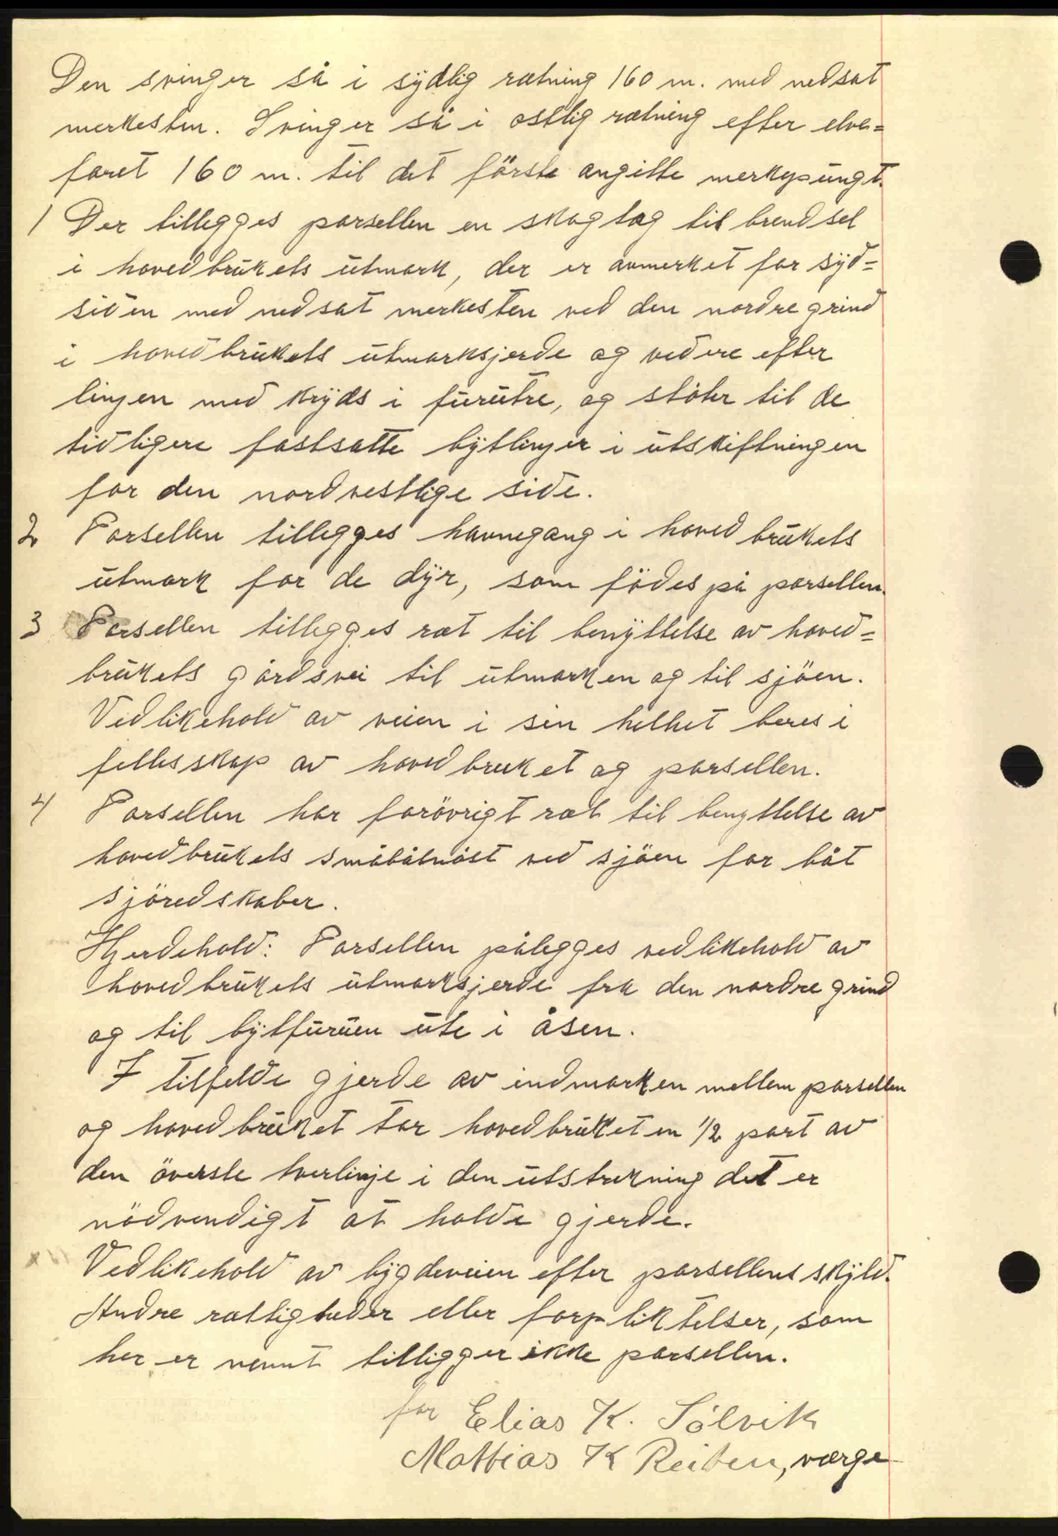 Den svinger så i sydlig retning 160 m. med nedsat
merkesten. Svinger så i østlig retning efter elve=
faret 160 m. til det förste angitte merkepungt.
1 Der tillegges parsellen en skogteg til brendsel
i hovedbrukets utmark, der er avmerket for syd=
siden med nedsat merkesten ved den nordre grind
i hovedbrukets utmarksjerde og videre efter
linjen med kryds i furutre, og støter til de
tidligere fastsatte bytlinjer i utskiftningen
for den nordvestlige side.
2 Parsellen tillegges havnegang i hovedbrukets
utmark for de dyr, som födes på parsellen.
3 Parsellen tillegges ret til benyttelse av hoved=
brukets gårdsvei til utmarken og til sjöen.
Vedlikehold av veien i sin helhet beres i
fellesskap av hovedbruket og parsellen.
4 Parsellen har forövrigt ret til benyttelse av
hovedbrukets småbåtnöst ved sjöen for båt
sjöredskaber.
Hjerdehold: Parsellen pålegges vedlikehold av
hovedbrukets utmarksjerde fra den nordre grind
og til bytfuruen ute i åsen.
I tilfelde gjerde av indmarken mellem parsellen
og hovedbruket tar hovedbruket en 1/2 part av
den överste tverlinje i den utstrekning det er
nödvendigt at holde gjerde.
Vedlikehold av bygdeveien efter parsellens skyld.
Andre rettigheder eller forpliktelser, som
her er nevnt tilligger ikke parsellen.
for Elias K. Sølvik
Mattias K Reiten, verge